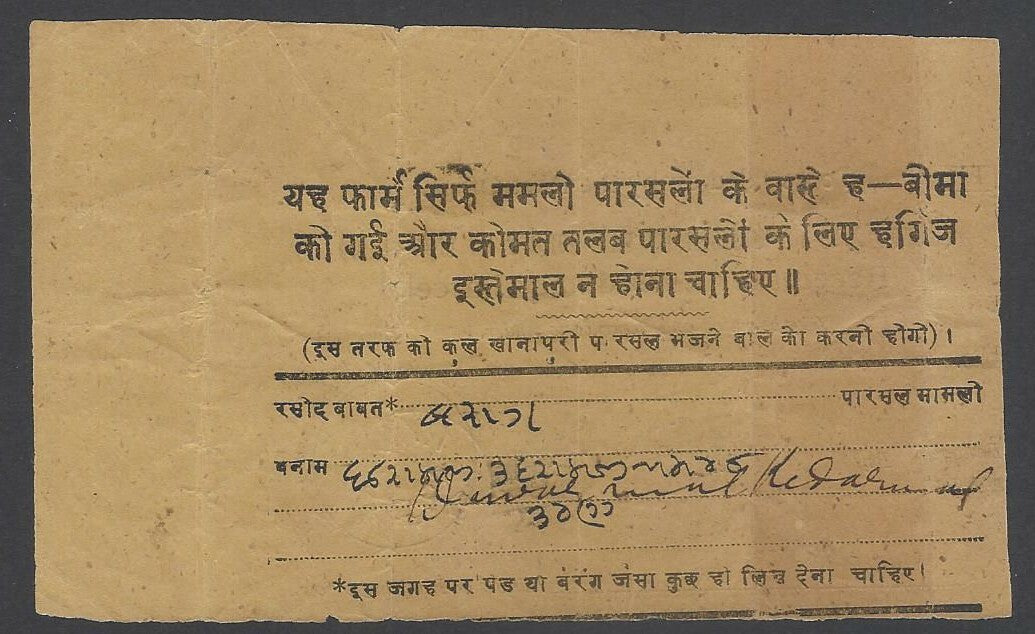 यह फार्म सिर्फ ममली पारसलों के वास्ते ह—बीमा
की गई और कीमत तलब पारसलों के लिए हर्गिज
इस्तेमाल न होना चाहिए॥
(इस तरफ की कुल खानापुरी पारसल भजने वाले को करनी होगी)।
रसीद बाबत* पारसल मामली
बनाम
Kedarmal
*इस जगह पर पेड या बैरंग जसा कुछ हो लिख देना चाहिए।